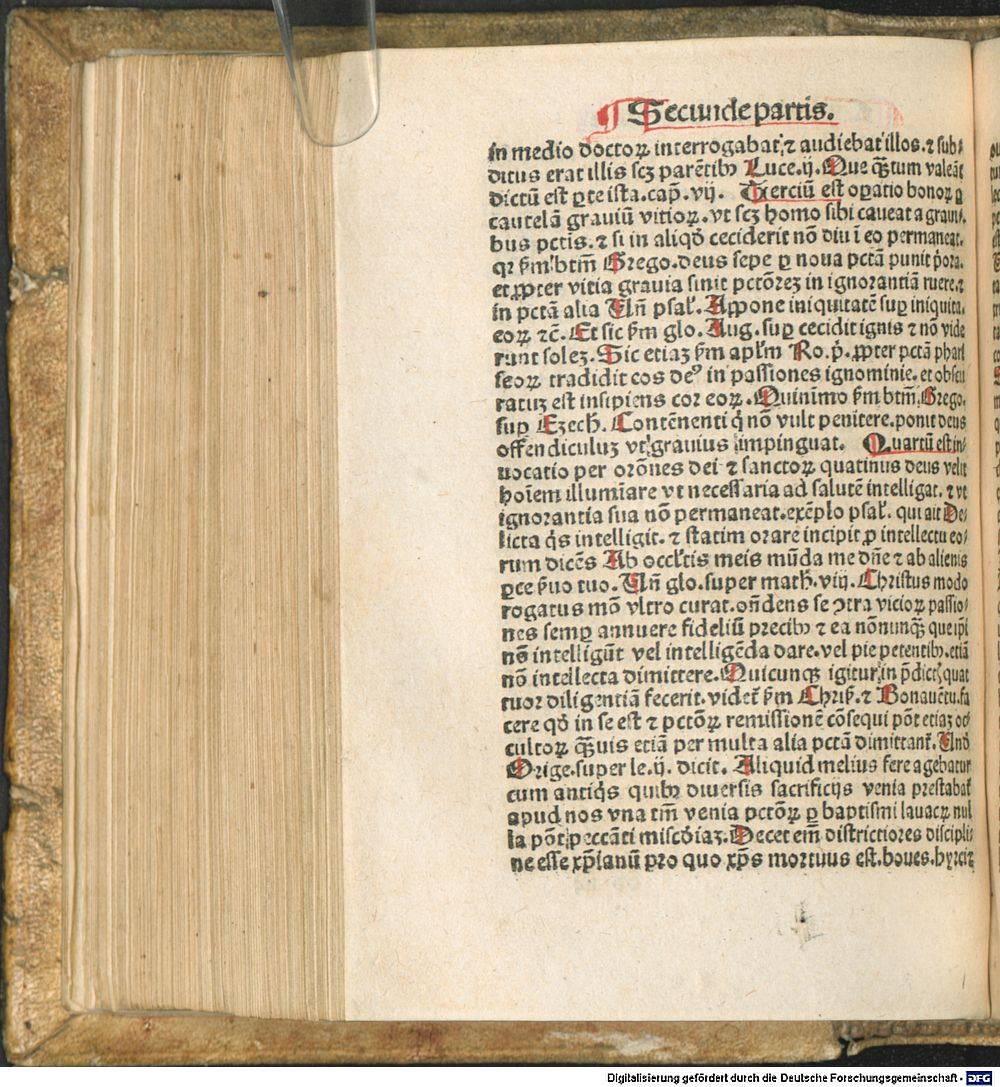 Secunde partis.
in medio doctoꝝ interrogabat,⁊ audiebat illos.⁊ sub⸗
ditus erat illis scꝫ parētibꝰ Luce.ij. Que q̄tum valeāt
dictū est ꝑte ista.cap̄.vij. Terciū est oꝑatio bonoꝝ ꝑ
cautelā graviū vitioꝝ.vt scꝫ homo sibi caueat a graui⸗
bus pctis.⁊ si in aliqđ ceciderit nō diu ī eo permaneat.
qꝛ ẜm btm̄ Grego.deus sepe ꝑ noua pctā punit p̄ora.
et ꝓpter vitia grauia sinit pctōreꝫ in ignorantiā ruere.⁊
in pctā alia Uñ psal̓. Appone iniquitatē suꝑ iniquita.
eoꝝ ⁊c̄. Et sic ẜm glo. Aug. suꝑ cecidit ignis ⁊ nō vide
runt soleꝫ. Sic etiaꝫ ẜm apl̓m Ro.p̓. ꝓpter pctā phari
seoꝝ tradidit eos deꝰ in passiones ignominie. et obscu
ratuꝫ est insipiens cor eoꝝ. Quinīmo ẜm btm̄ Grego.
suꝑ Ezech̓. Contēnenti q̓ nō vult penitere.ponit deus
offendiculuꝫ vt grauius impinguat. Quartū est in⸗
uocatio per orōnes dei ⁊ sanctoꝝ quatinus deus velit
hoīem illumīare vt necessaria ad salutē intelligat. ⁊ vt
ignorantia sua nō permaneat.exēplo psal̓. qui ait De⸗
licta q̓s intelligit. ⁊ statim orare incipit ꝓ intellectu eo⸗
rum dicēs Ab occl̓tis meis mūda me dn̄e ⁊ ab alienis
ꝑce ẜuo tuo. Uñ glo.super math̓.viij. Christus modo
rogatus mō vltro curat.on̄dens se ↄtra vicioꝝ passio⸗
nes semꝑ annuere fideliū precibꝰ ⁊ ea nōnunq̄ꝫ que ip̄i
nō intelligūt vel intelligēda dare.vel pie petentibꝰ.etiā
nō intellecta dimittere. Quicunqꝫ igitur in p̄dict̓ quat
tuor diligentiā fecerit.videt̓ ẜm Chriẜ.⁊ Bonauētu.fa
cere qđ in se est ⁊ pctōꝝ remissionē cōsequi pōt etiaꝫ oc⸗
cultoꝝ q̄ꝫuis etiā per multa alia pctā dimittant̓. Unđ
Orige.super le.ij. dicit. Aliquid melius fere agebatur
cum antiq̓s quibꝰ diuersis sacrificijs venia prestabat̓
apud nos vna tm̄ venia pctōꝝ ꝑ baptismi lauacꝝ nul
la pōt peccāti mis̓c̓diaꝫ. Decet em̄ districtiores discipli⸗
ne esse xp̄ianū pro quo xp̄s mortuus est.boues.hyrciꝫ
Digitalisierung gefördert durch die Deutsche Forschungsgemeinschaft - DFG